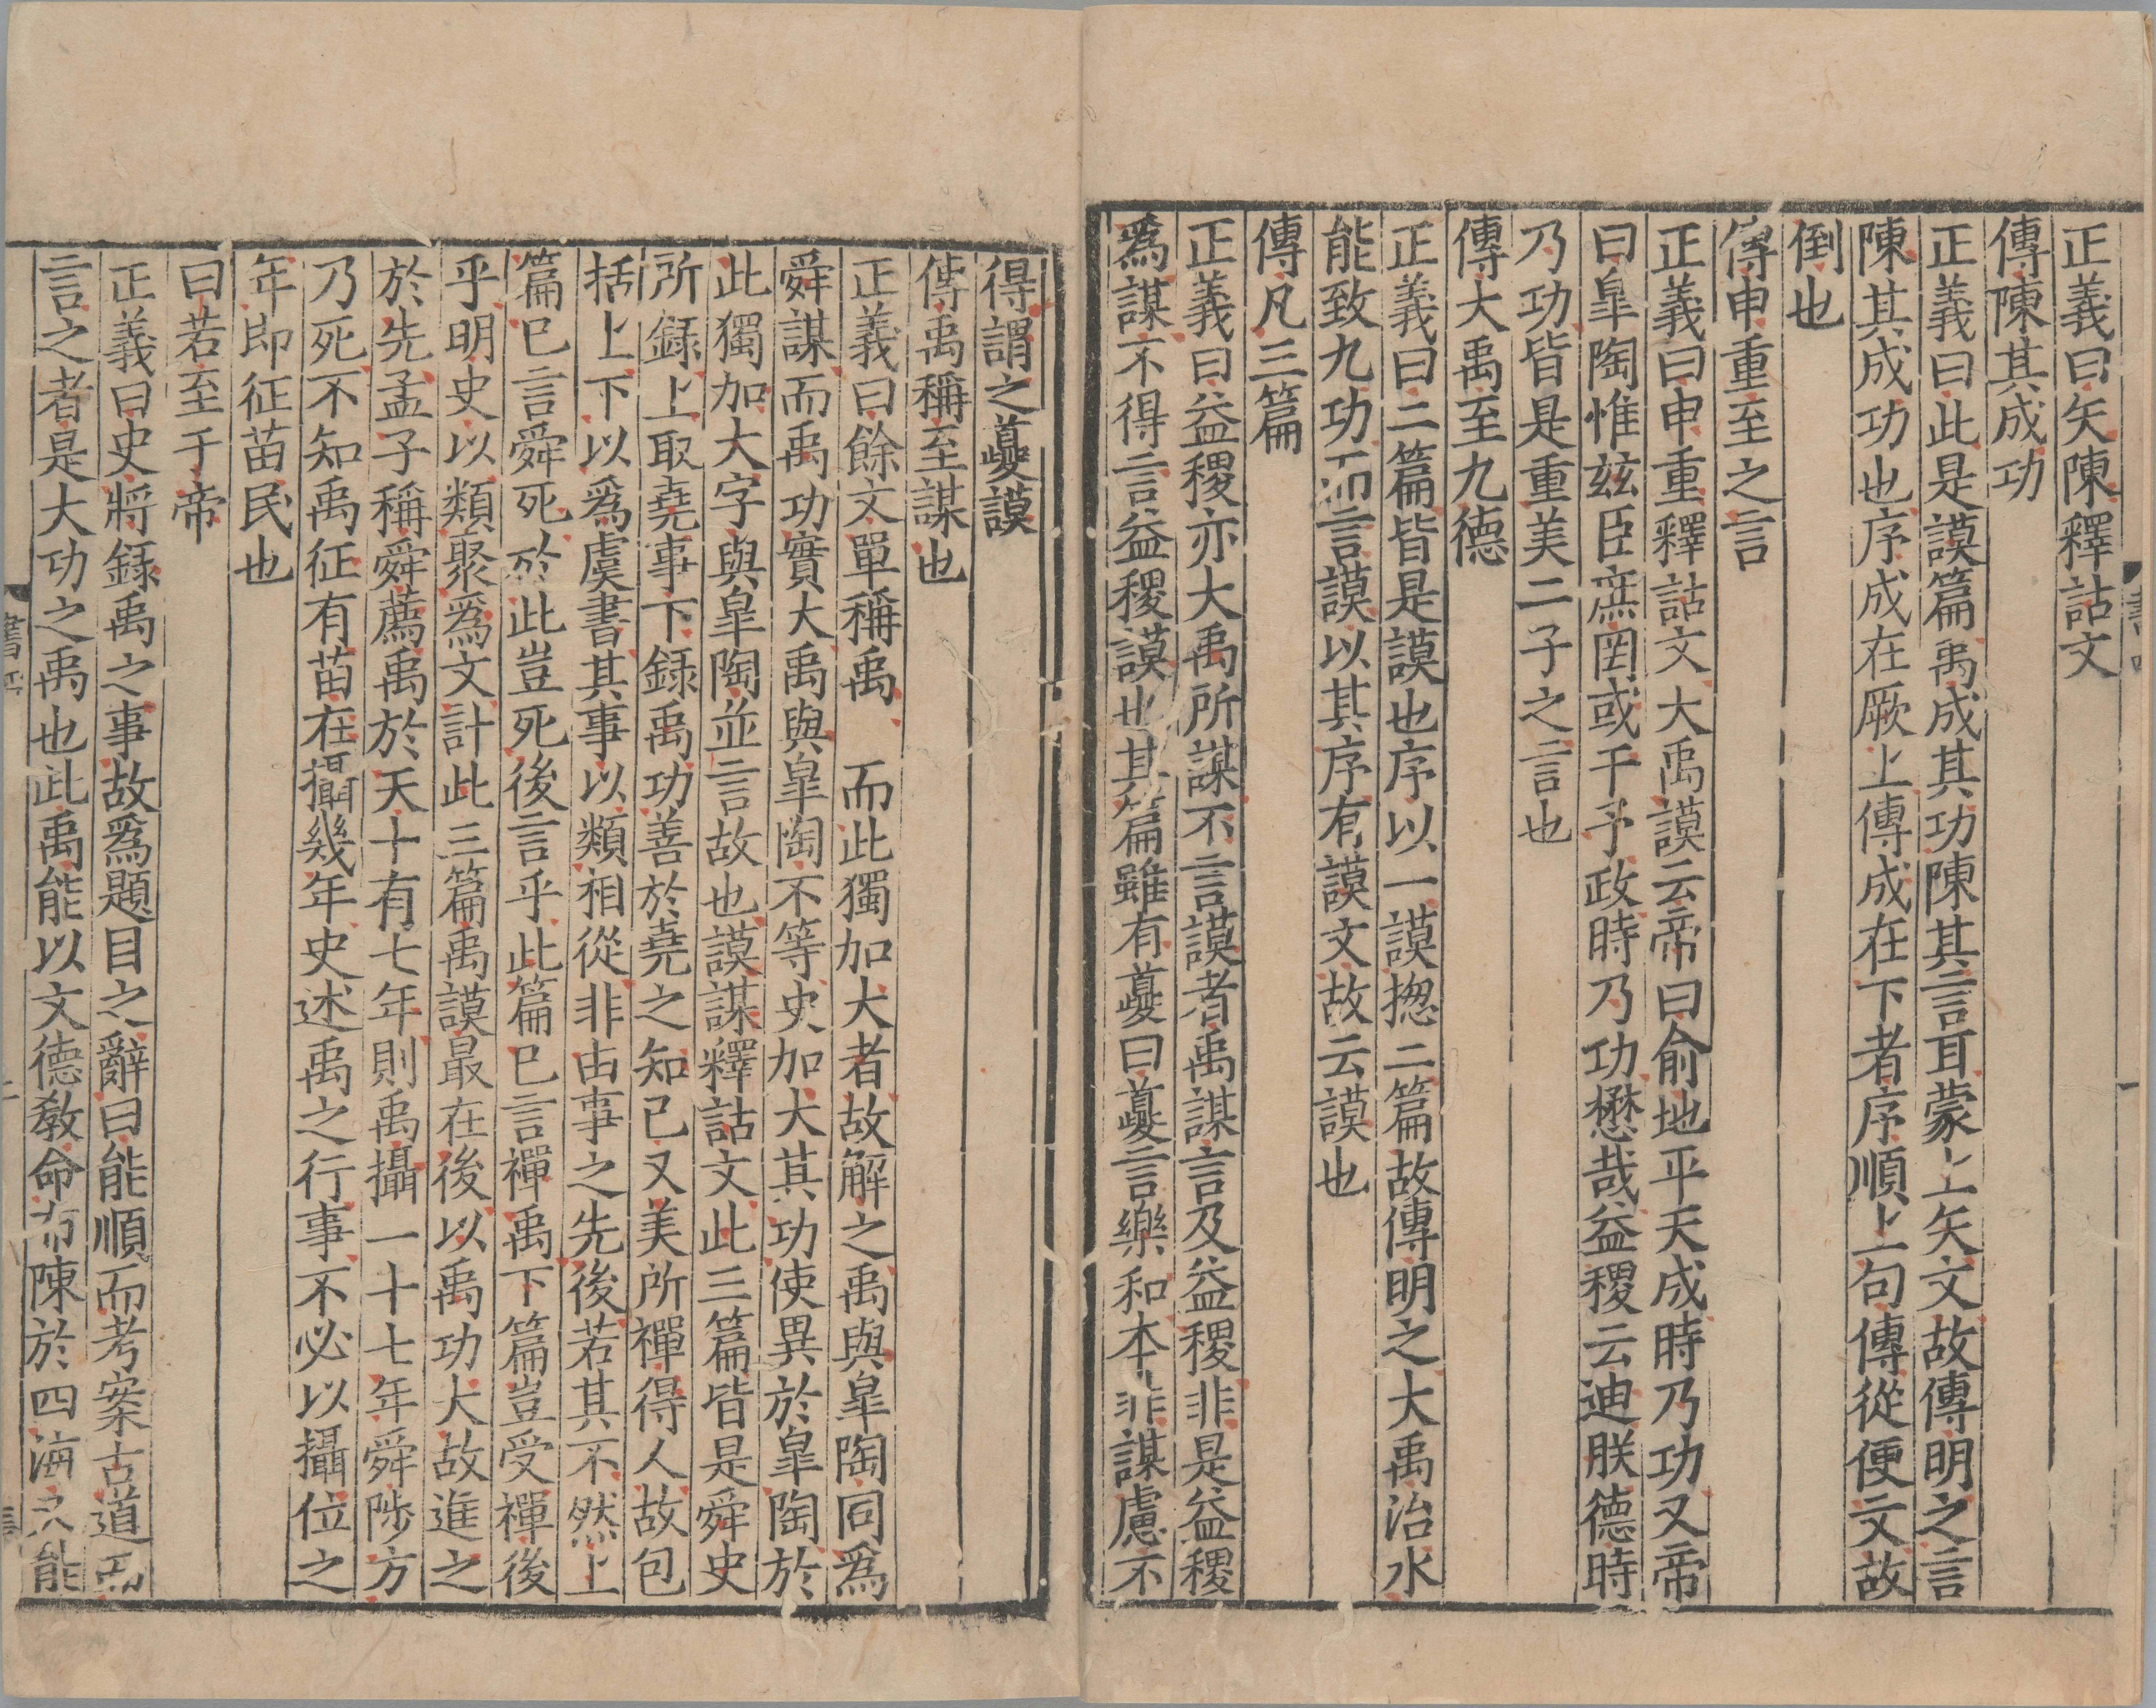 正義曰矢陳釋詁文
傳陳其成功
正義曰此是謨篇禹成其功陳其言耳蒙上矢文故傳明之言
陳其成功也序成在厥上傳成在下者序順上句傳從便文故
倒也
傳申重至之言
正義曰申重釋詁文大禹謨云帝曰俞地平天成時乃功又帝
曰皐陶惟玆臣庶罔或干予政時乃功懋哉益稷云迪朕德時
乃功皆是重美二子之言也
傳大禹至九德
正義曰二篇皆是謨也序以一謨揔二篇故傳明之大禹治水
能致九功而言謨以其序有謨文故云謨也
傳凡三篇
正義曰益稷亦大禹所謀不言謨者禹謀言及益稷非是益稷
爲謀不得言益稷謨也其篇雖有夔曰夔言樂和本非謀慮不
得謂之夔謨
傳禹稱至謀也
正義曰餘文單稱禹　而此獨加大者故解之禹與皐陶同爲
舜謀而禹功實大禹與皐陶不等史加大其功使異於皐陶於
此獨加大字與皐陶並言故也謨謀釋詁文此三篇皆是舜史
所錄上取堯事下錄禹功善於堯之知已又美所禪得人故包
括上下以爲虞書其事以類相從非由事之先後若其不然上
篇已言舜死於此豈死後言乎此篇已言禪禹下篇豈受禪後
乎明史以類聚爲文計此三篇禹謨最在後以禹功大故進之
於先孟子稱舜薦禹於天十有七年則禹攝一十七年舜陟方
乃死不知禹征有苗在攝幾年史述禹之行事不必以攝位之
年即征苗民也
曰若至于帝
正義曰史將錄禹之事故爲題目之辭曰能順而考案古道而
言之者是大功之禹也此禹能以文德敎命布陳於四海又能